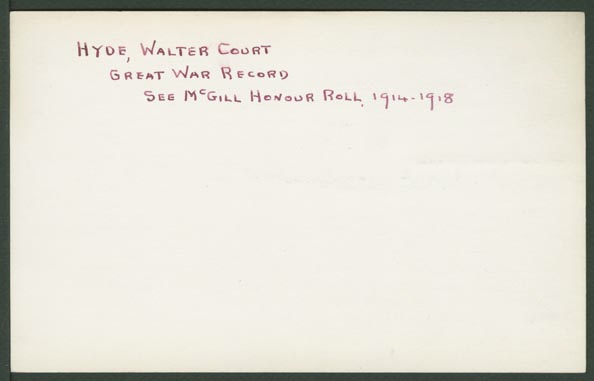 HYDE, WALTER COURT
GREAT WAR RECORD
SEE McGILL HONOUR ROLL, 1914-1918